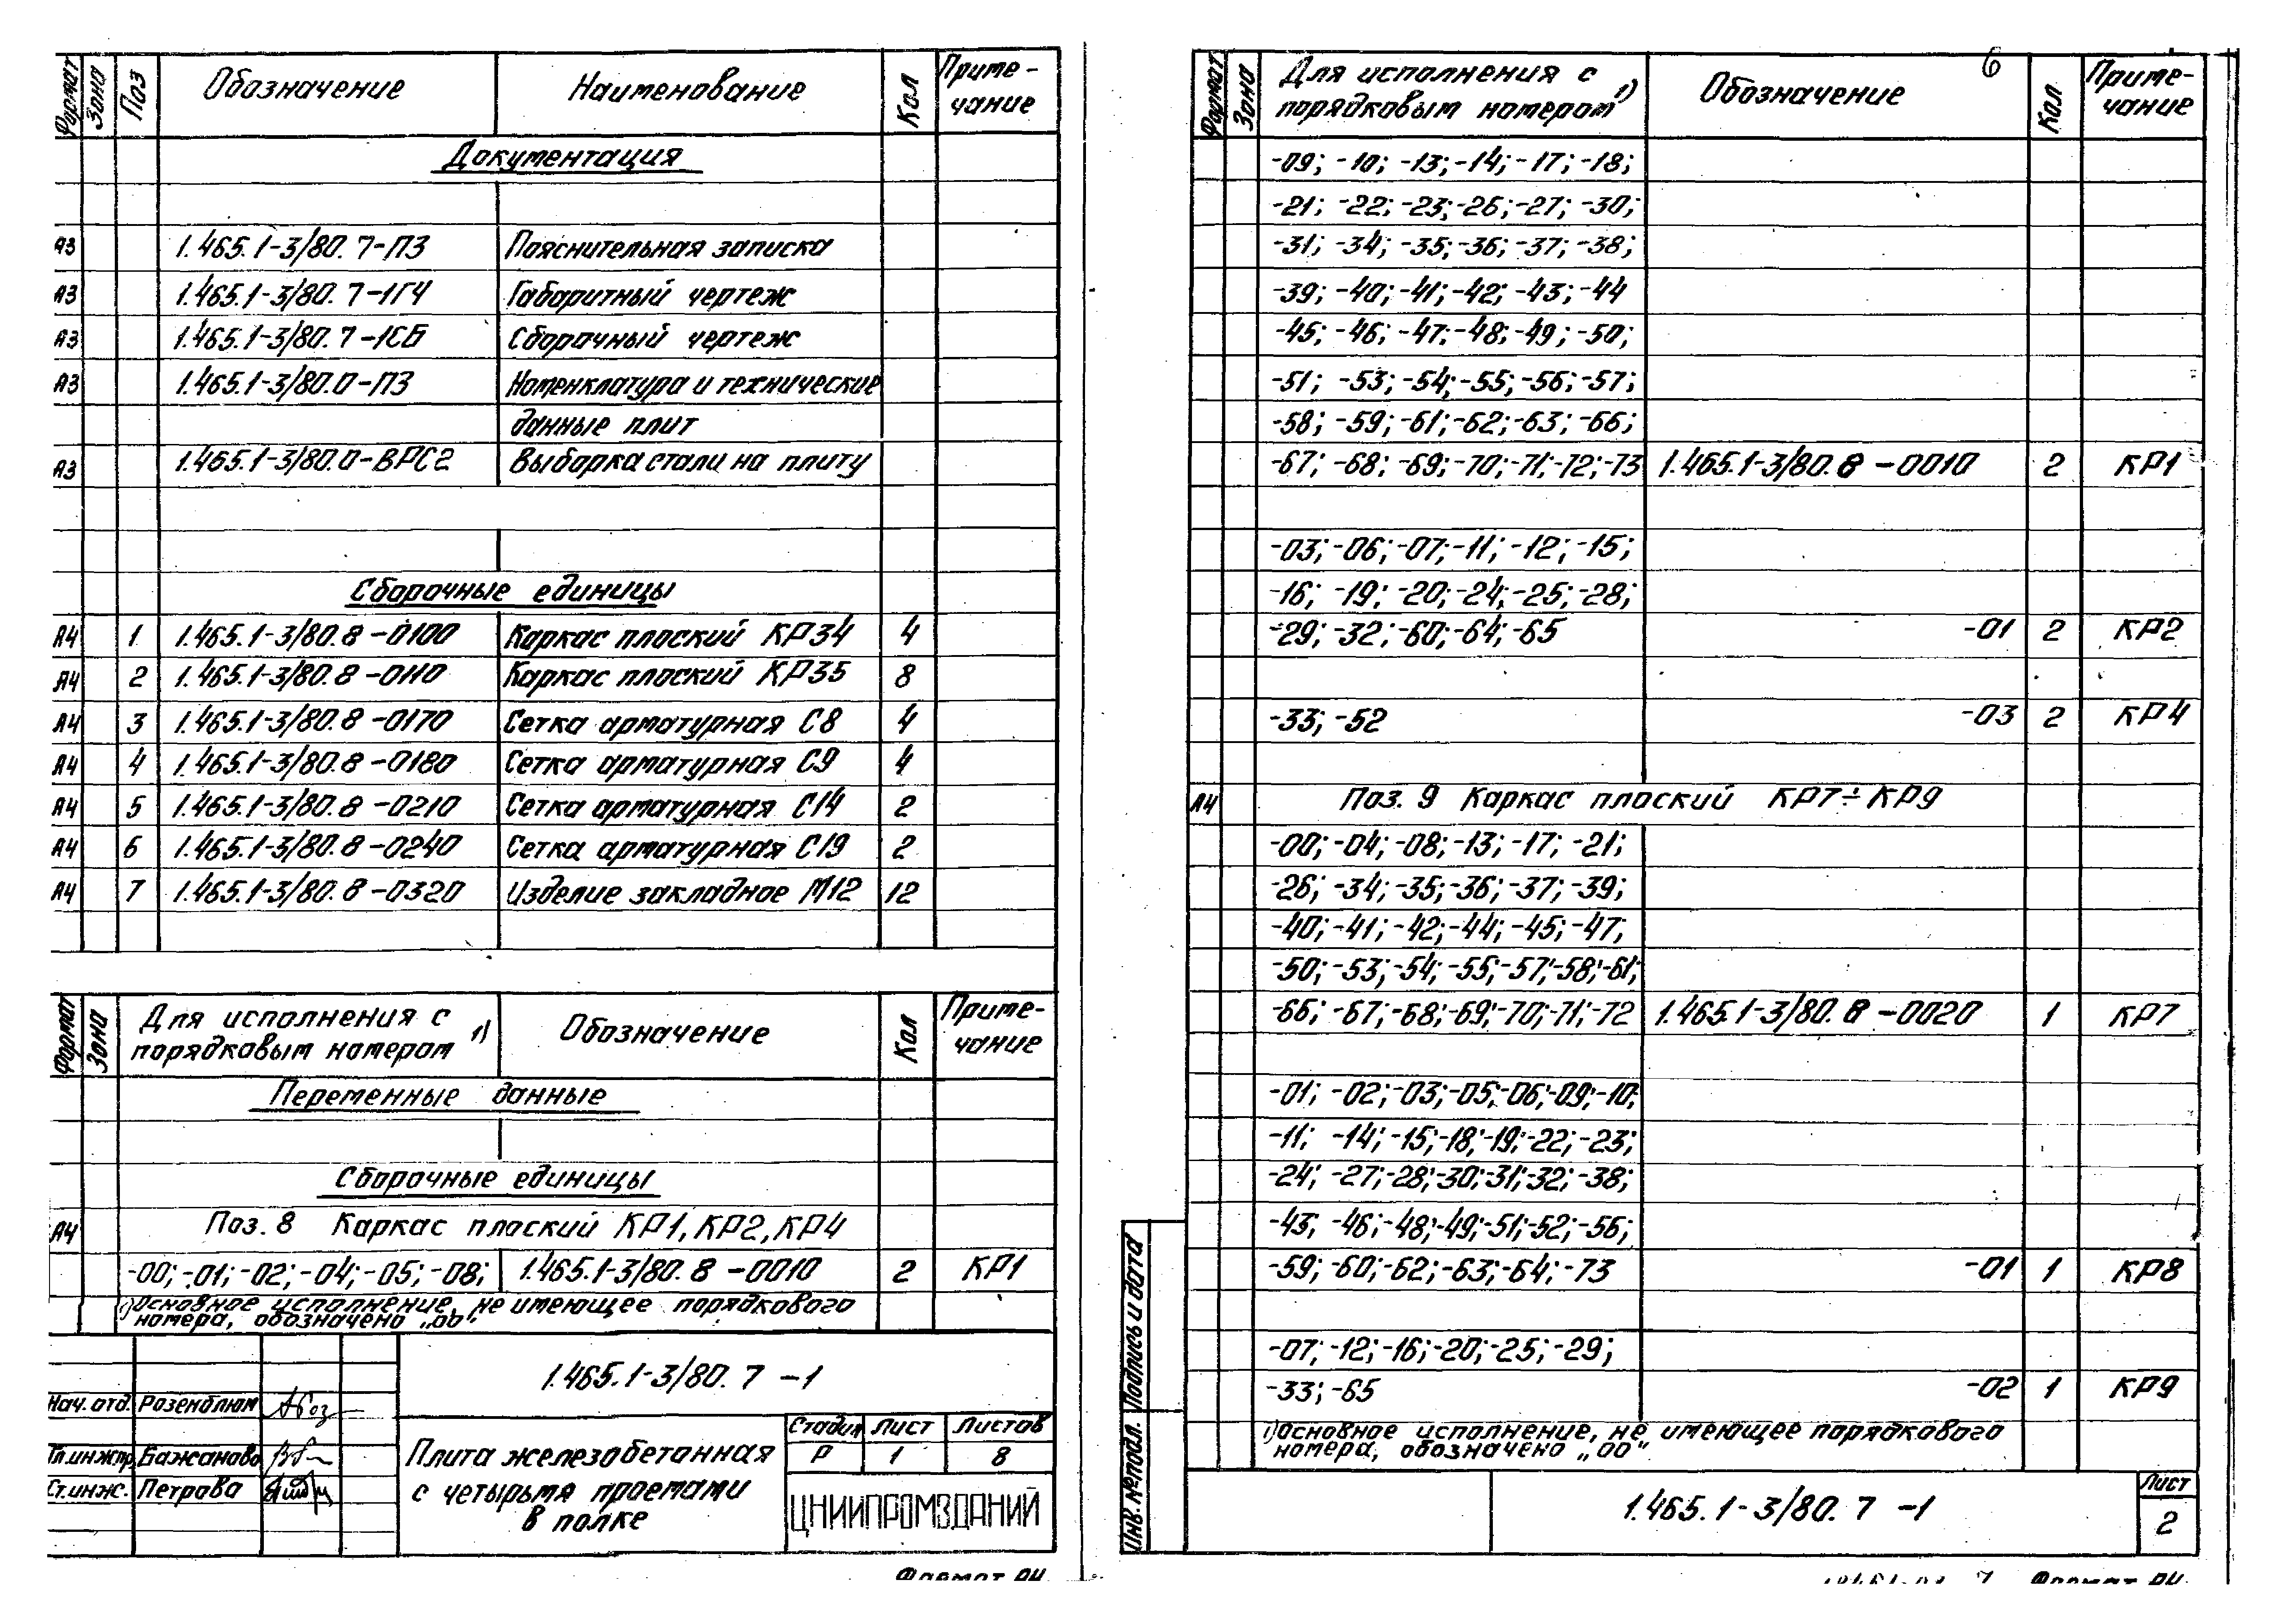 Формат Зона Поз Обозначение Наименование Кол Приме-
чание
Документация
А3 1.465.1-3/80.7-ПЗ Пояснительная записка
А3 1.465.1-3/80.7-1ГЧ Габаритный чертеж
А3 1.465.1-3/80.7-1СБ Сборочный чертеж
А3 1.465.1-3/80.0-ПЗ Номенклатура и технические
данные плит
А3 1.465.1-3/80.0-ВРС2 Выборка стали на плиту
Сборочные единицы
А4 1 1.465.1-3/80.8-0100 Каркас плоский КР34 4
А4 2 1.465.1-3/80.8-0110 Каркас плоский КР35 8
А4 3 1.465.1-3/80.8-0170 Сетка арматурная С8 4
А4 4 1.465.1-3/80.8-0180 Сетка арматурная С9 4
А4 5 1.465.1-3/80.8-0210 Сетка арматурная С14 2
А4 6 1.465.1-3/80.8-0240 Сетка арматурная С19 2
А4 7 1.465.1-3/80.8-0320 Изделие закладное М12 12
Формат Зона Для исполнения с порядковым номером 1) Обозначение Кол Приме-
чание
Переменные данные
Сборочные единицы
А4 Поз. 8 Каркас плоский КР1, КР2, КР4
-00; -01; -02; -04; -05; -08; 1.465.1-3/80.8-0010 2 КР1
1) Основное исполнение, не имеющее порядкового
номера, обозначено „00".
1.465.1-3/80.7-1
Нач. отд. Розенблюм
Гл.инж.пр. Бажанова
Ст.инж. Петрова
Плита железобетонная
с четырьмя проемами
в полке
Стадия Лист Листов
Р 1 8
ЦНИИПРОМЗДАНИЙ
Формат А4
6
Формат Зона Для исполнения с порядковым номером 1) Обозначение Кол Приме-
чание
-09; -10; -13; -14; -17; -18;
-21; -22; -23; -26; -27; -30;
-31; -34; -35; -36; -37; -38;
-39; -40; -41; -42; -43; -44
-45; -46; -47; -48; -49; -50;
-51; -53; -54; -55; -56; -57;
-58; -59; -61; -62; -63; -66;
-67; -68; -69; -70; -71; -72; -73 1.465.1-3/80.8-0010 2 КР1
-03; -06; -07; -11; -12; -15;
-16; -19; -20; -24; -25; -28;
-29; -32; -60; -64; -65 -01 2 КР2
-33; -52 -03 2 КР4
А4 Поз. 9 Каркас плоский КР7÷КР9
-00; -04; -08; -13; -17; -21;
-26; -34; -35; -36; -37; -39;
-40; -41; -42; -44; -45; -47;
-50; -53; -54; -55; -57; -58; -61;
-66; -67; -68; -69; -70; -71; -72 1.465.1-3/80.8-0020 1 КР7
-01; -02; -03; -05; -06; -09; -10;
-11; -14; -15; -18; -19; -22; -23;
-24; -27; -28; -30; -31; -32; -38;
-43; -46; -48; -49; -51; -52; -56;
-59; -60; -62; -63; -64; -73 -01 1 КР8
-07; -12; -16; -20; -25; -29;
-33; -65 -02 1 КР9
1) Основное исполнение, не имеющее порядкового
номера, обозначено „00".
Инв. № подл. Подпись и дата
1.465.1-3/80.7-1
Лист
2
7 Формат А4